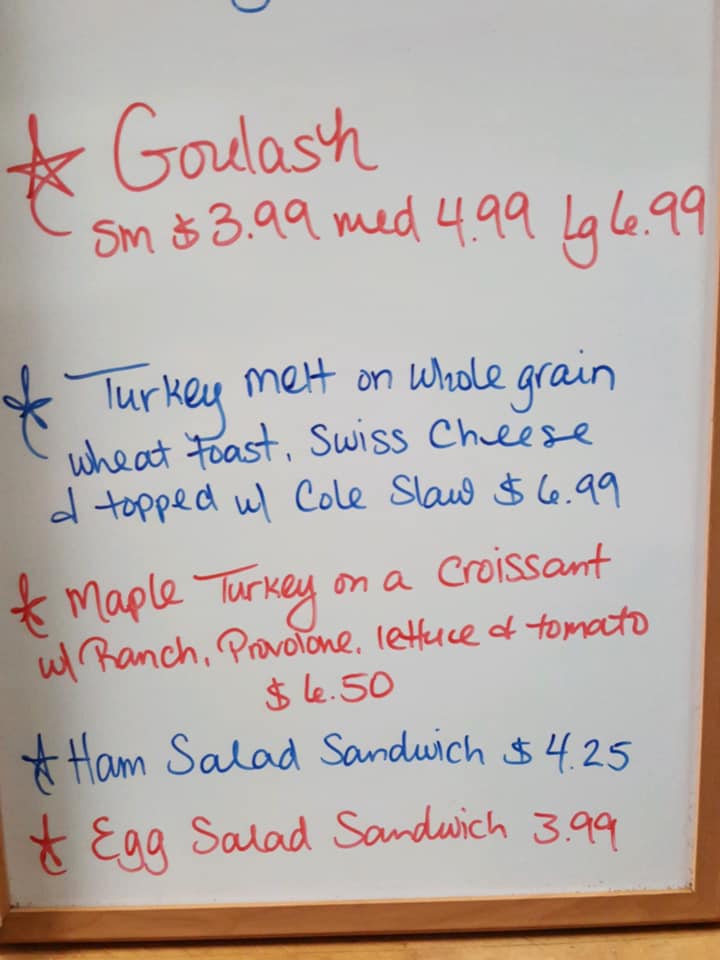 Goulash
Sm $3.99 med 4.99 Lg 6.99
Turkey melt on whole grain
wheat toast, Swiss Cheese
& topped w/ Cole Slaw $6.99
Maple Turkey on a Croissant
w/ Ranch, Provolone, lettuce & tomato
$6.50
Ham Salad Sandwich $4.25
Egg Salad Sandwich 3.99